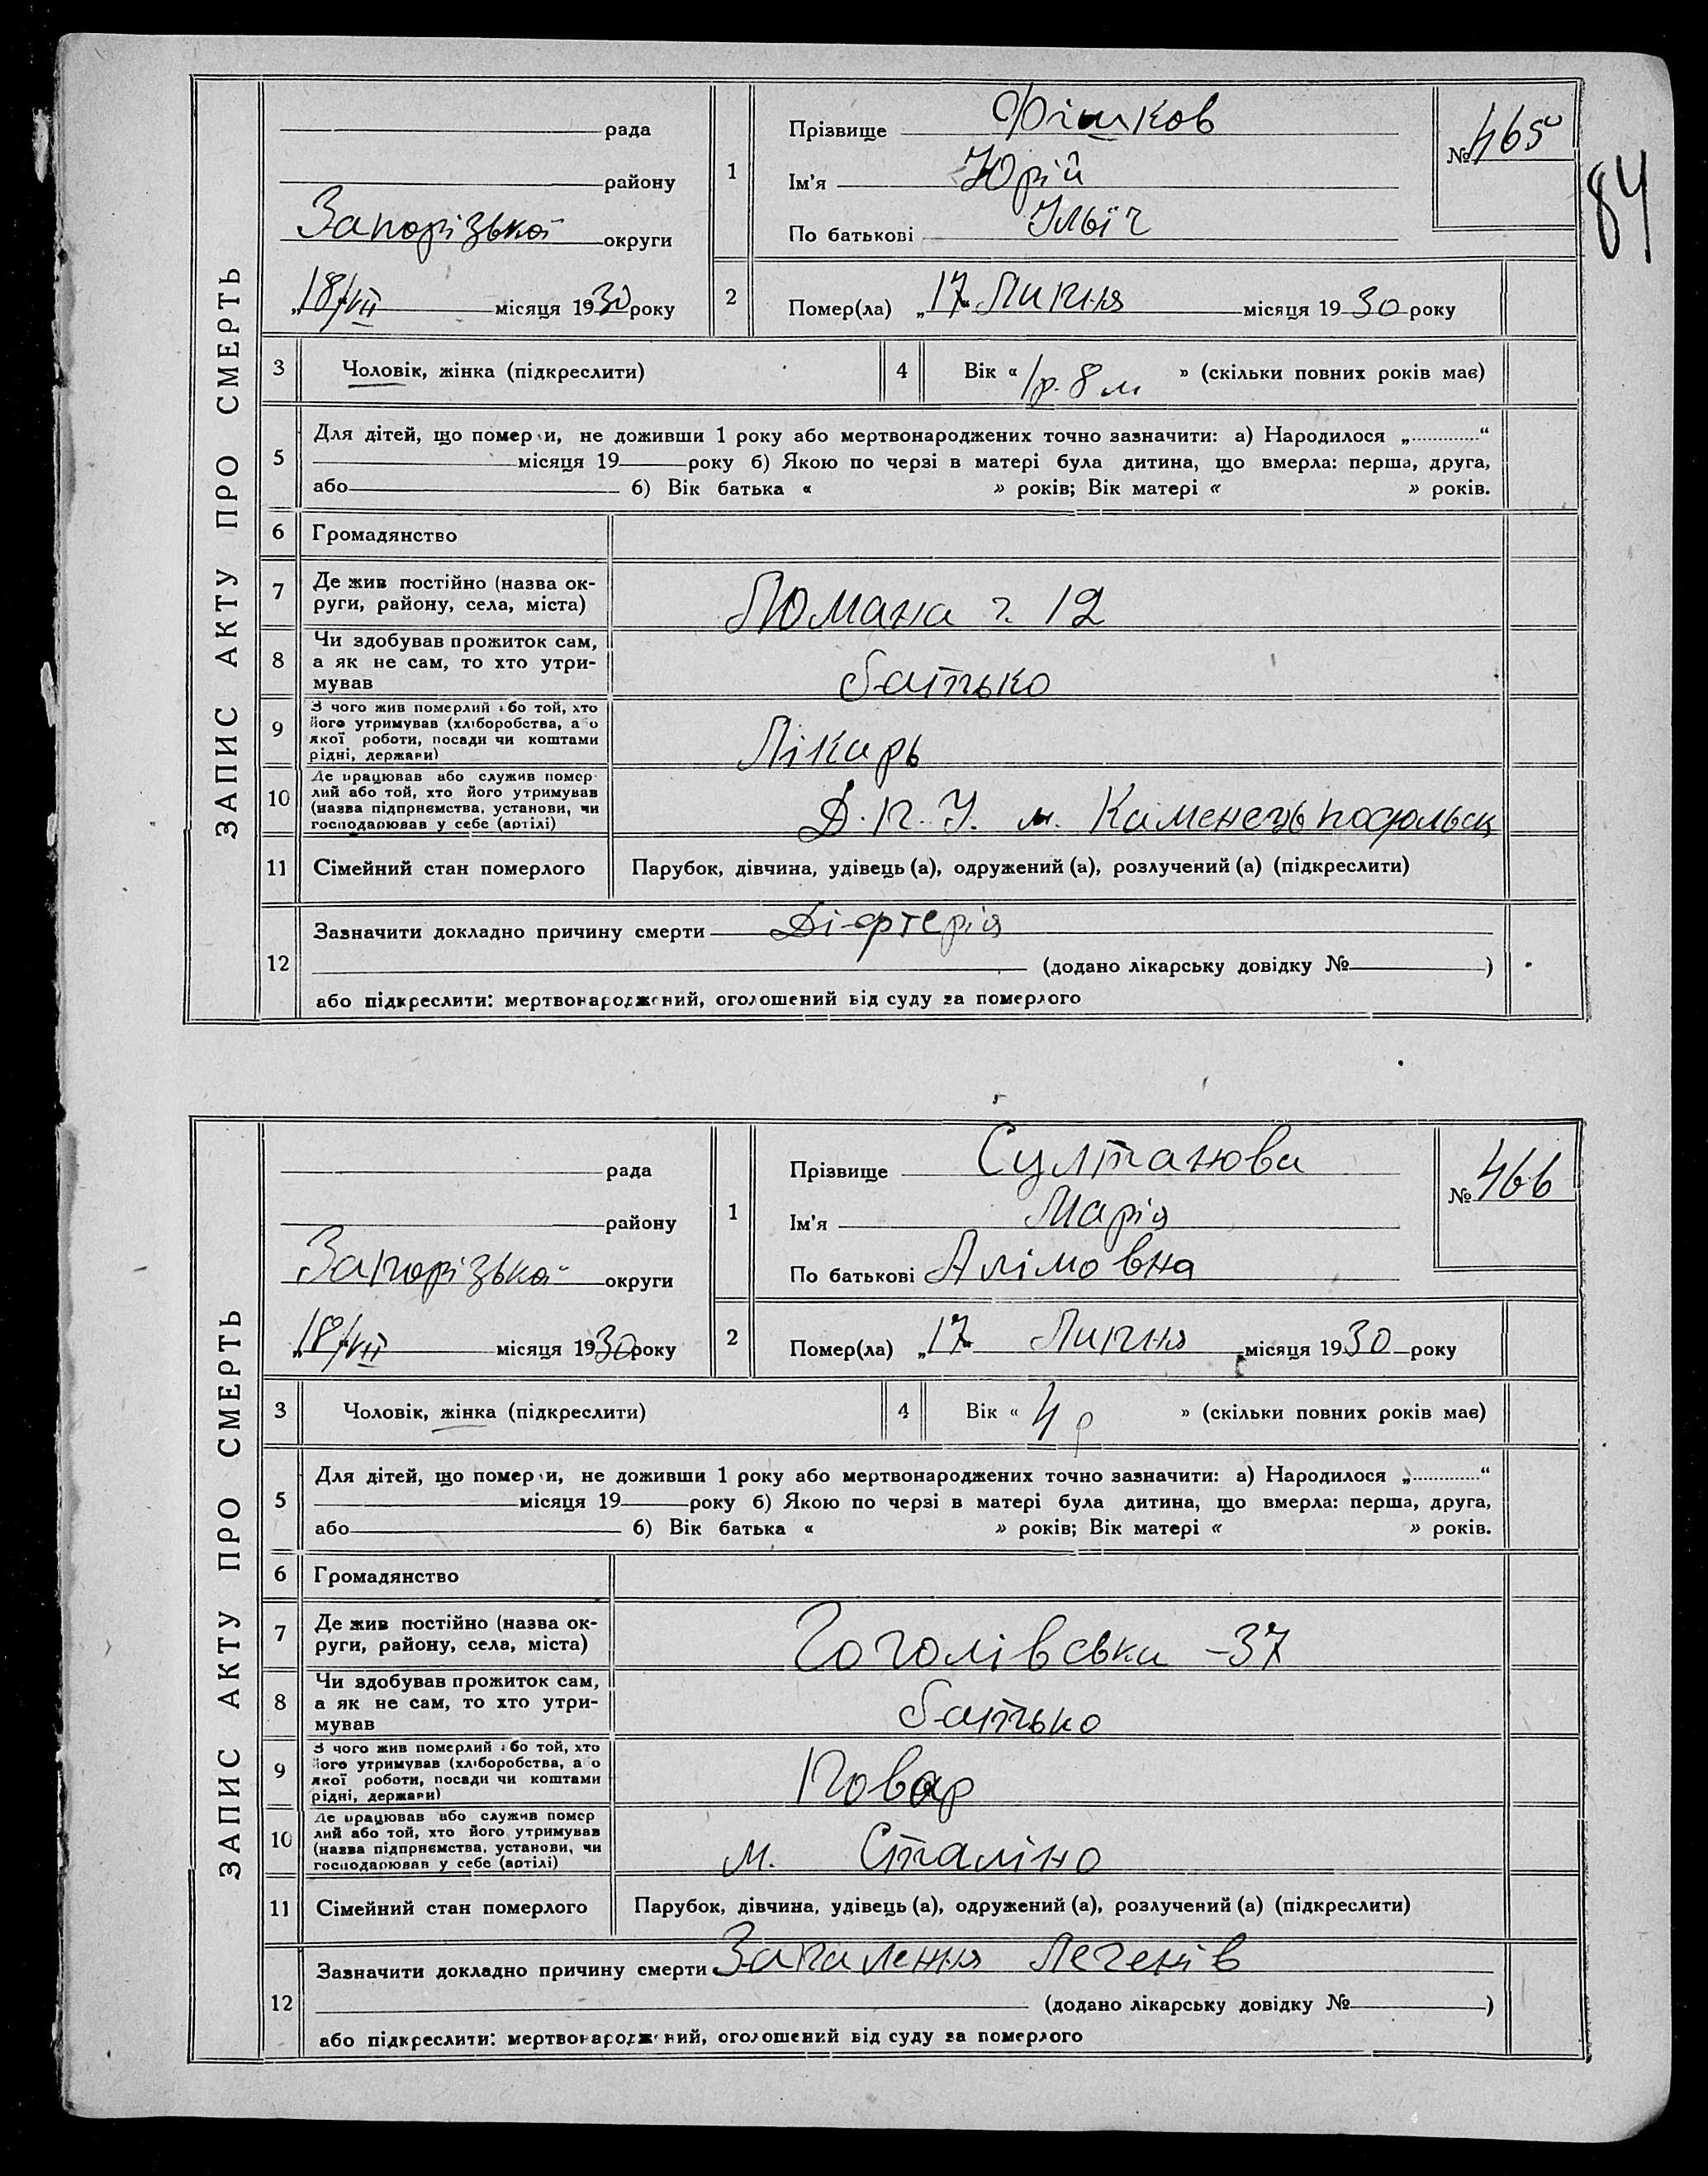 84
ЗАПИС АКТУ ПРО СМЕРТЬ
рада
району
Запорізької округи
„18/VII місяця 1930 року
1
Прізвище Фішков
Ім'я Юрій
По батькові Ільїч
№ 465
2
Помер(ла) „17 Липня місяця 1930 року
3
Чоловік, жінка (підкреслити)
4
Вік « 1 р. 8 м » (скільки повних років має)
5
Для дітей, що померли, не доживши 1 року або мертвонароджених точно зазначити: а) Народилося „............“
місяця 19 року б) Якою по черзі в матері була дитина, що вмерла: перша, друга,
або б) Вік батька « » років; Вік матері « » років.
6
Громадянство
7
Де жив постійно (назва ок-
руги, району, села, міста)
12
8
Чи здобував прожиток сам,
а як не сам, то хто утри-
мував
батько
9
З чого жив померлий або той, хто
його утримував (хліборобства, або
якої роботи, посади чи коштами
рідні, держави)
Лікарь
10
Де працював або служив помер
лий або той, хто його утримував
(назва підприємства, установи, чи
господарював у себе (артілі)
Д.П.У. м. Каменець подольськ
11
Сімейний стан померлого
Парубок, дівчина, удівець (а), одружений (а), розлучений (а) (підкреслити)
12
Зазначити докладно причину смерти Діфтерія
(додано лікарську довідку № )
або підкреслити: мертвонароджений, оголошений від суду за померлого
ЗАПИС АКТУ ПРО СМЕРТЬ
рада
району
Запорізької округи
„18/VII місяця 1930 року
1
Прізвище Султанова
Ім'я Марія
По батькові Алімовна
№ 466
2
Помер(ла) „17 Липня місяця 1930 року
3
Чоловік, жінка (підкреслити)
4
Вік « 4 р » (скільки повних років має)
5
Для дітей, що померли, не доживши 1 року або мертвонароджених точно зазначити: а) Народилося „............“
місяця 19 року б) Якою по черзі в матері була дитина, що вмерла: перша, друга,
або б) Вік батька « » років; Вік матері « » років.
6
Громадянство
7
Де жив постійно (назва ок-
руги, району, села, міста)
Гоголівська - 37
8
Чи здобував прожиток сам,
а як не сам, то хто утри-
мував
батько
9
З чого жив померлий або той, хто
його утримував (хліборобства, або
якої роботи, посади чи коштами
рідні, держави)
Повар
10
Де працював або служив помер
лий або той, хто його утримував
(назва підприємства, установи, чи
господарював у себе (артілі)
м. Сталіно
11
Сімейний стан померлого
Парубок, дівчина, удівець (а), одружений (а), розлучений (а) (підкреслити)
12
Зазначити докладно причину смерти Запалення Легенів
(додано лікарську довідку № )
або підкреслити: мертвонароджений, оголошений від суду за померлого